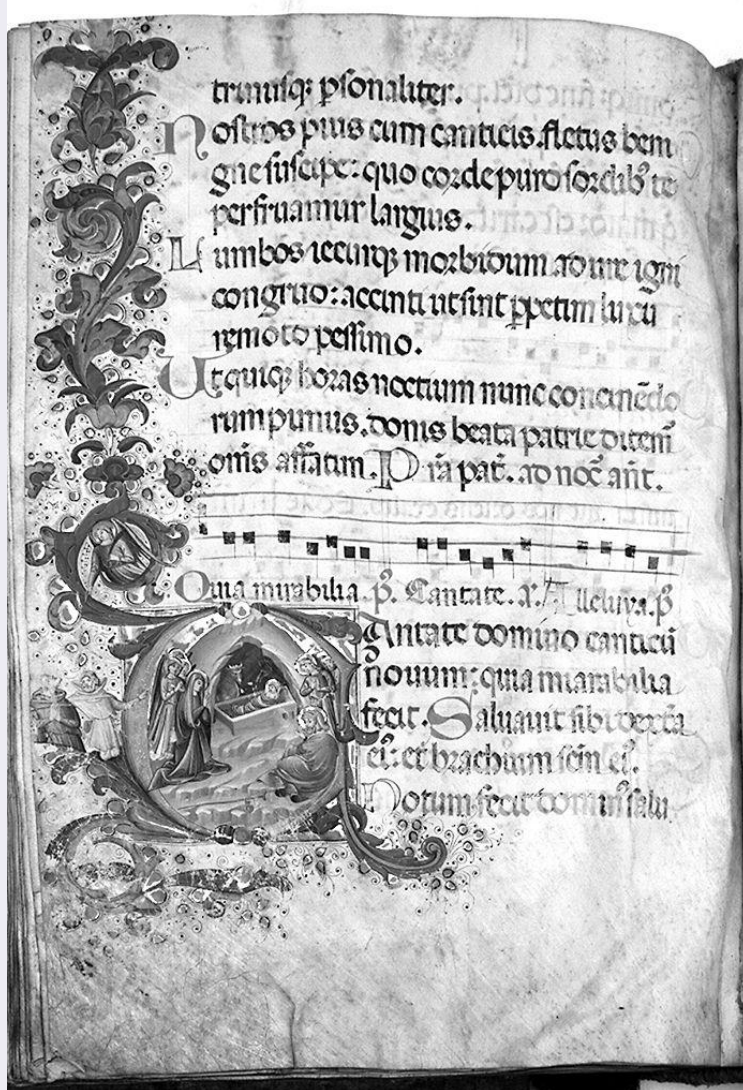 trinusq; psonaliter.
Nostros pius cum canticis. fletus beni
gne suscipe: quo corde puro sordib' te
perfruamur largius.
Lumbos iecurq; morbidum. adure igni
congruo: accincti ut sint ppetim luxu
remoto pessimo.
Ut quiq; horas noctium nunc concinēdo
rumpimus. donis beatę patrię ditemur
omīs affatim. Pr̄a pat̄. ad noc̄ an̄t.
Quia mirabilia. p̄s. Cantate. a. Alleluya. p̄s
Cantate domino canticū
nouum: quia mirabilia
fecit. Saluauit sibi dext̄a
ei': et brachium sc̄m ei'.
Notum fecit domin' salu